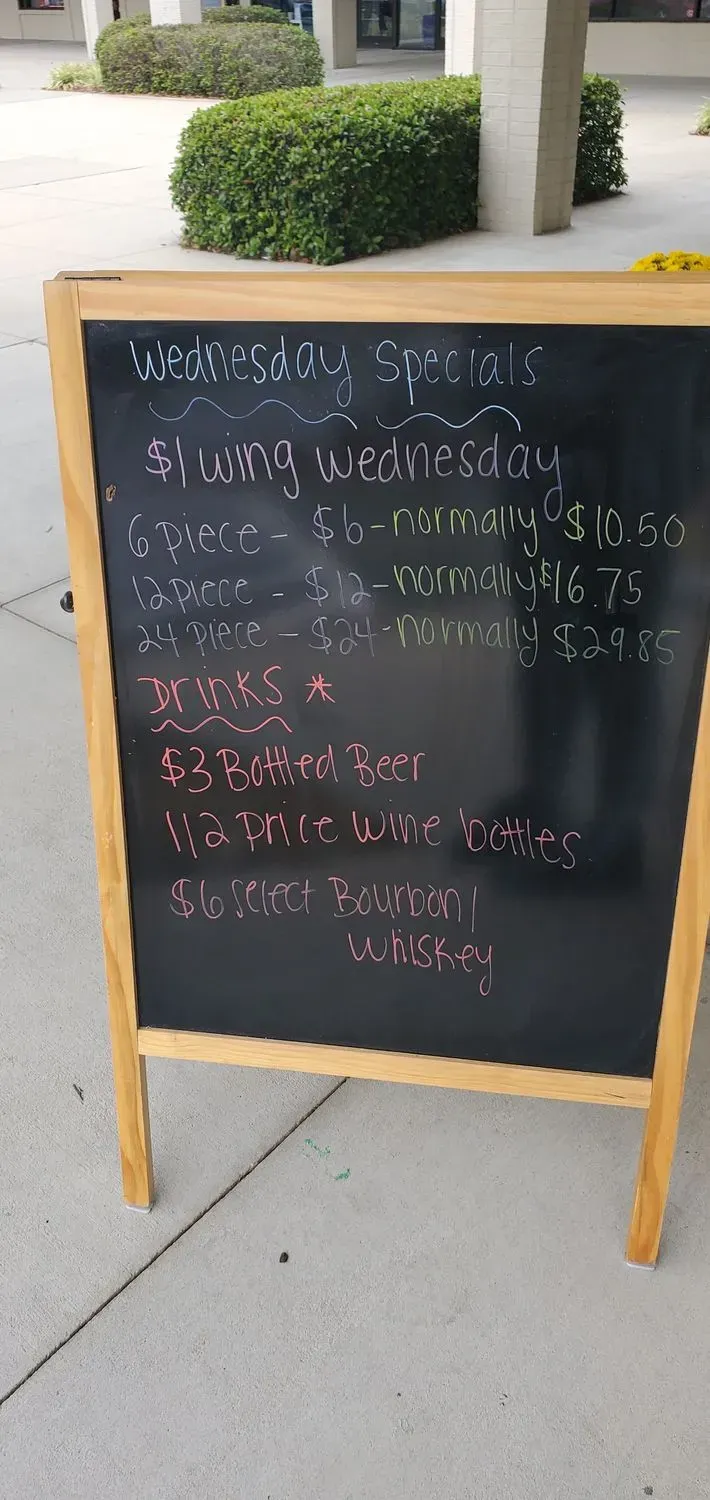 Wednesday Specials
$1 wing wednesday
6 piece - $6 - normally $10.50
12 piece - $12 - normally $16.75
24 piece - $24 - normally $29.85
Drinks *
$3 Bottled Beer
1/2 price wine bottles
$6 select Bourbon/
whiskey